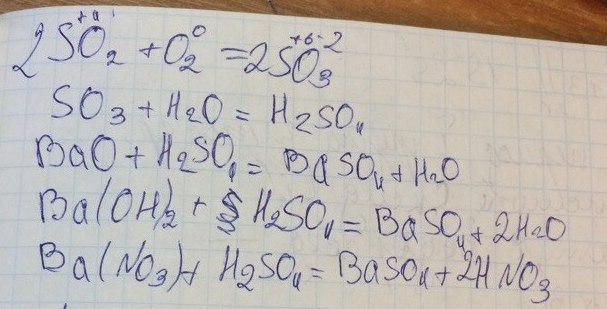 2SO₂ + O₂⁰ = 2SO₃
SO₃ + H₂O = H₂SO₄
BaO + H₂SO₄ = BaSO₄ + H₂O
Ba(OH)₂ + H₂SO₄ = BaSO₄ + 2H₂O
Ba(NO₃)+ H₂SO₄ = BaSO₄ + 2HNO₃